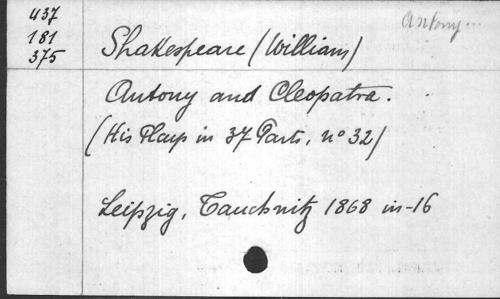 437
181
375
Antony...
Shakespeare (William)
Antony and Cleopatra.
(His Plays in 37 Parts, nº 32)
Leipzig, Tauchnitz 1868 in-16